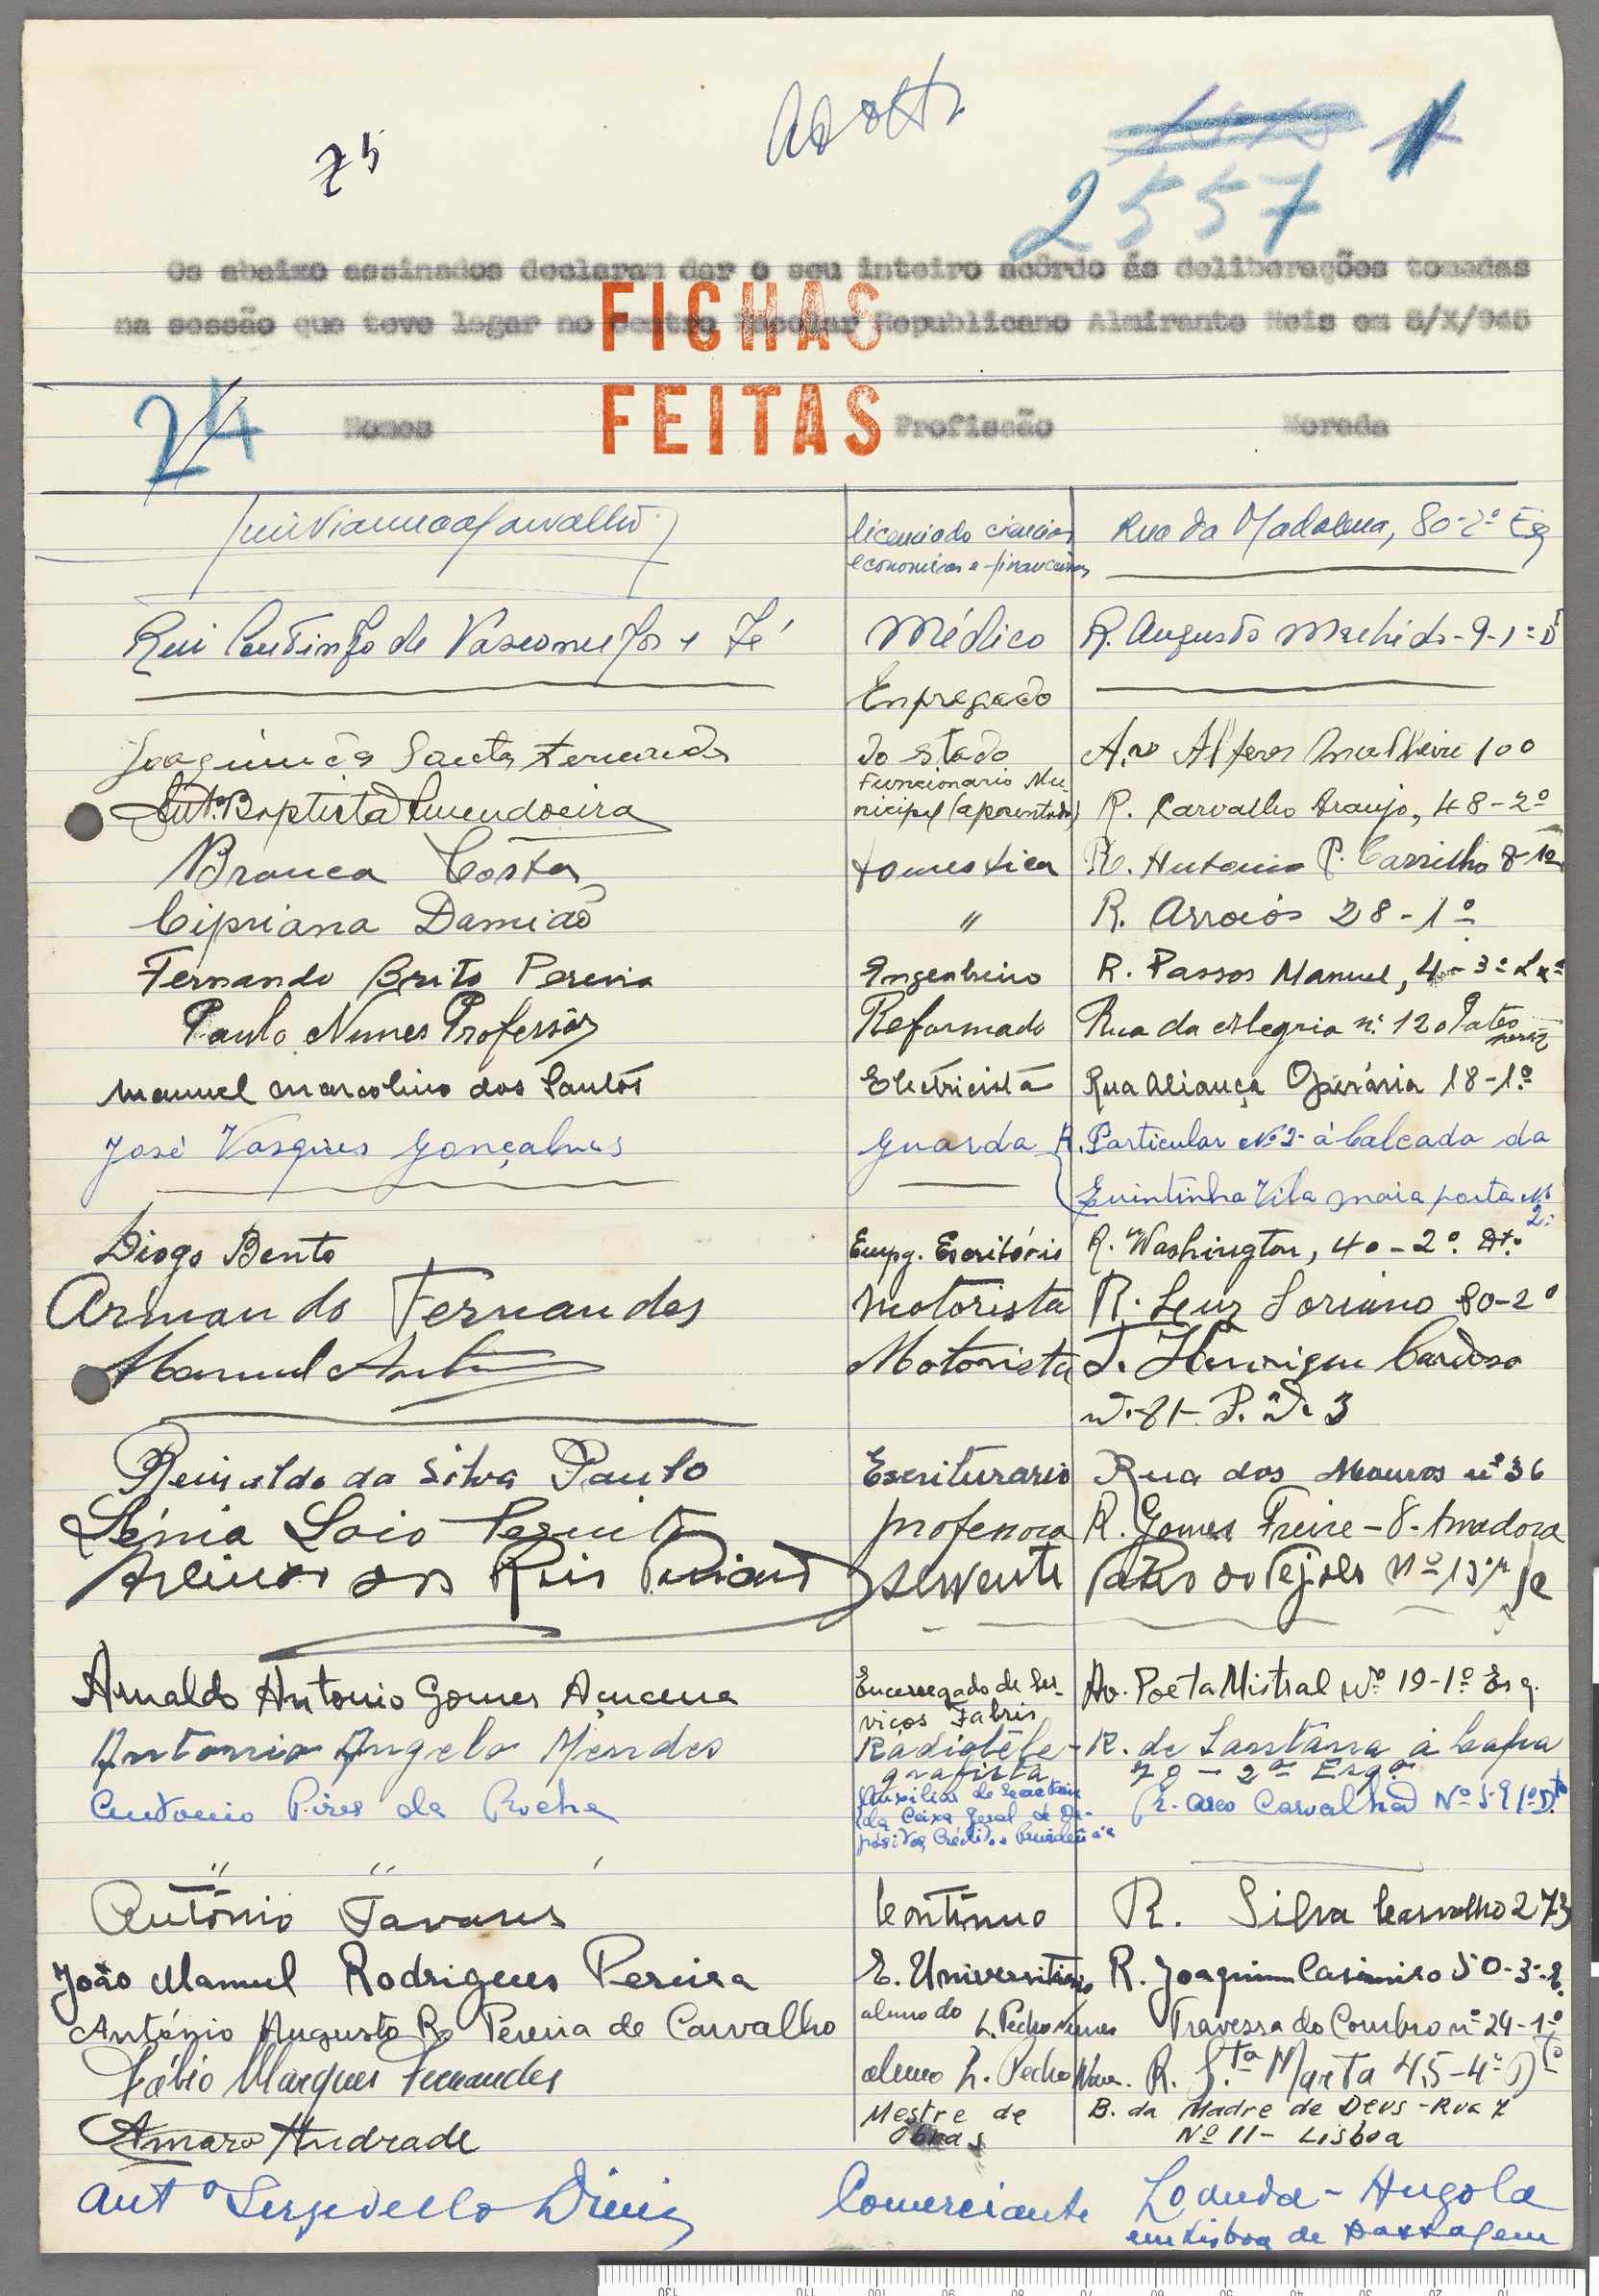 75
2557
Os abaixo assinados declaram dar o seu inteiro acôrdo ás deliberações tomadas
na sessão que teve logar no Centro Escolar Republicano Almirante Reis em 8/X/945
FICHAS
FEITAS
24 Nomes Profissão Morada
licenciado ciencias Rua da Madalena, 80-2º Esq
economicas e financeiras
Rui Coutinho de Vasconcelos e Sé Médico R. Augusto Machado-9-1º D
Empregado
Joaquim da Santa Fernandes do stado Alferes Malheiro 100
Funcionario Mu-
Antº. Baptista Amendoeira nicipal (aposentado) R. Carvalho Araujo, 48-2º
Branca Costa domestica R. Antonio P. Carrilho 8-1º
Cipriana Damião " R. Arroios 28-1º
Fernando Brito Pereira Engenheiro R. Passos Manuel, 4-3º
Paulo Nunes Professor Reformado Rua da Alegria nº 120 Pateo
Manuel Marcolino dos Santos Electricista Rua Aliança Operária 18-1º
José Vasques Gonçalves Guarda R. Particular Nº 2 á Calçada da
Quintinha Vila Maia porta Nº
2
Diogo Bento Empg. Escritório R. Washington, 40-2º. Dtº
Armando Fernandes Motorista R. Luz Soriano 80-2º
Manuel Motorista T. Henrique Cardoso
Nº 81- P. 3
Reinaldo da Silva Paulo Escriturario Rua dos Mouros nº 36
professora R. Gomes Freire-8-Amadora
dos Reis servente Nº 13
Arnaldo Antonio Gomes Açucena Encarregado de Ser- Av. Poeta Mistral Nº 19-1º Esq.
viços Fabris
Antonio Angelo Mendes Rádiotele- R. de Santana á Lapa
grafista 70-2º Esqº
Antonio Pires da Rocha Auxiliar de Secretaria R. Arco Carvalhão Nº 1º Dto
da Caixa Geral de De-
pósitos, Crédito e Previdência
" " '
António Tavares Contínuo R. Silva Carvalho 273
João Manuel Rodrigues Pereira E. Universitário R. Joaquim Casimiro 50-3-E.
António Augusto R. Pereira de Carvalho aluno do L. Pedro Nunes Travessa do Combro nº 24-1º
Fábio Marques Fernandes aluno L. Pedro Nunes. R. S.ta Marta 45-4º Dto
Amaro Andrade Mestre de B. da Madre de Deus-Rua 7
Obras Nº 11- Lisboa
Antº Diniz Comerciante Loanda-Angola
em Lisboa de passagem